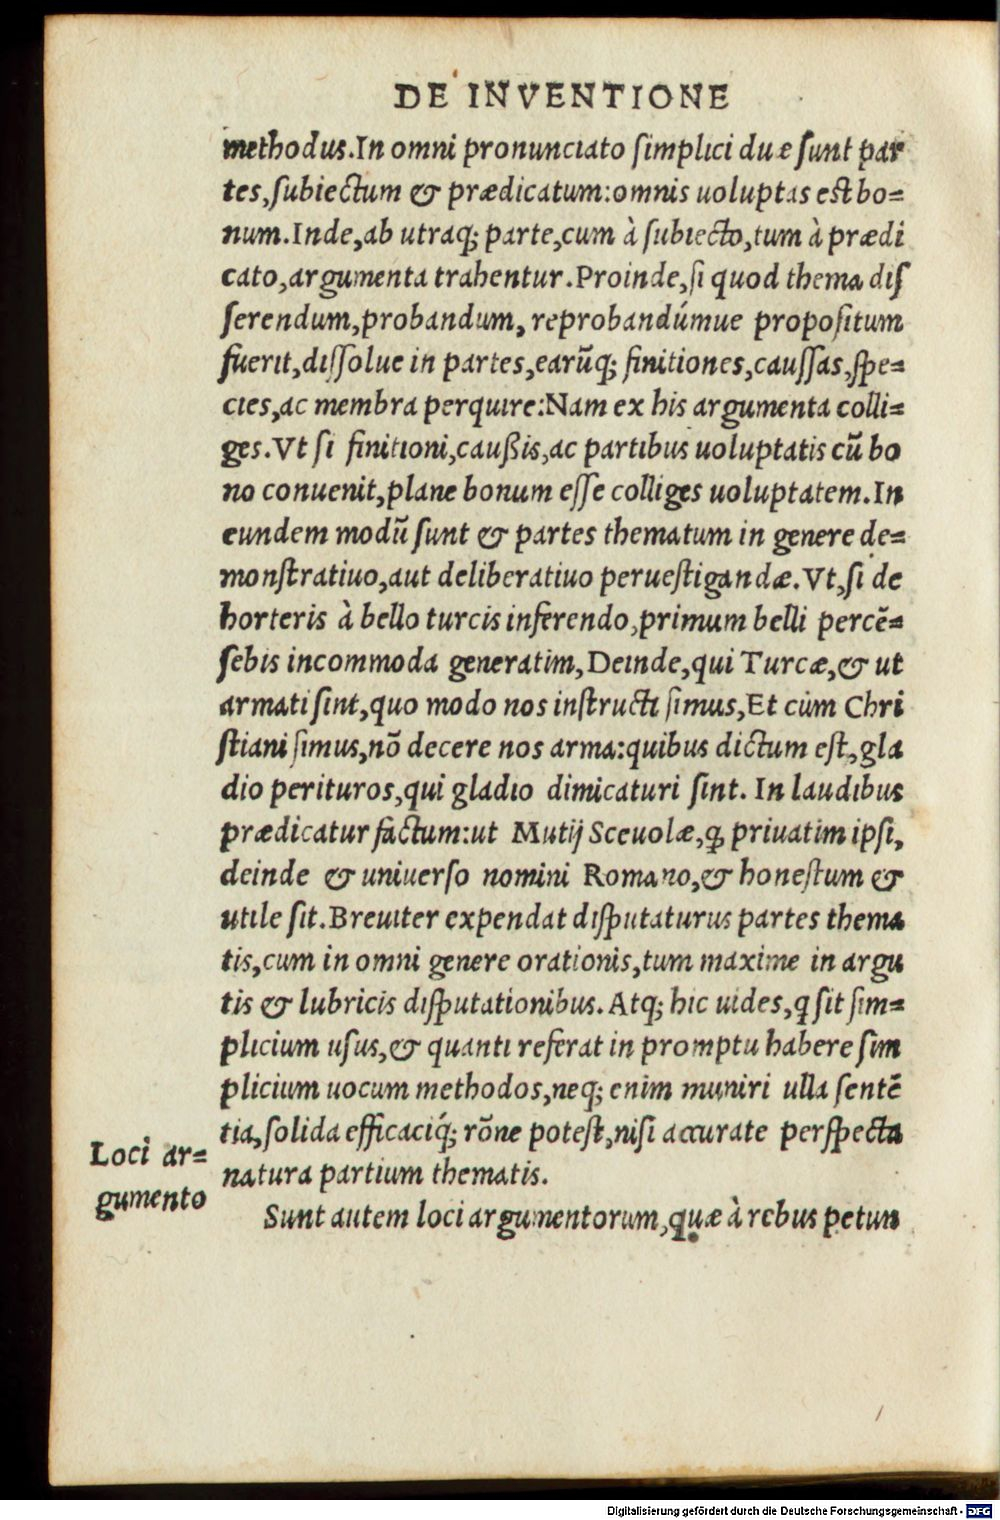 DE INVENTIONE
methodus.In omni pronunciato ſimplici duæ ſunt par
tes,ſubiectum & prædicatum:omnis uoluptas eſt bo=
num.Inde,ab utraq; parte,cum à ſubiecto,tum à prædi
cato,argumenta trahentur.Proinde,ſi quod thema diſ
ſerendum,probandum, reprobandúmue propoſitum
fuerit,diſſolue in partes,earūq; finitiones,cauſſas,ſpe=
cies,ac membra perquire:Nam ex his argumenta colli=
ges.Vt ſi finitioni,caußis,ac partibus uoluptatis cū bo
no conuenit,plane bonum eſſe colliges uoluptatem.In
eundem modū ſunt & partes thematum in genere de=
monſtratiuo,aut deliberatiuo perueſtigandæ.Vt,ſi de
horteris à bello turcis inferendo,primum belli percē=
ſebis incommoda generatim,Deinde,qui Turcæ,& ut
armati ſint,quo modo nos inſtructi ſimus,Et cùm Chri
ſtiani ſimus,nō decere nos arma:quibus dictum eſt,gla
dio perituros,qui gladio dimicaturi ſint. In laudibus
prædicatur factum:ut Mutij Sceuolæ,ꝙ priuatim ipſi,
deinde & uniuerſo nomini Romano,& honeſtum &
utile ſit.Breuiter expendat diſputaturus partes thema
tis,cum in omni genere orationis,tum maxime in argu
tis & lubricis diſputationibus.Atq; hic uides,q̃ ſit ſim=
plicium uſus,& quanti referat in promptu habere ſim
plicium uocum methodos,neq; enim muniri ulla ſentē
tia,ſolida efficaciq́; rōne poteſt,niſi accurate perſpecta
natura partium thematis.
Loci ar=
gumento
Sunt autem loci argumentorum,quæ à rebus petun
Digitalisierung gefördert durch die Deutsche Forschungsgemeinschaft - DFG